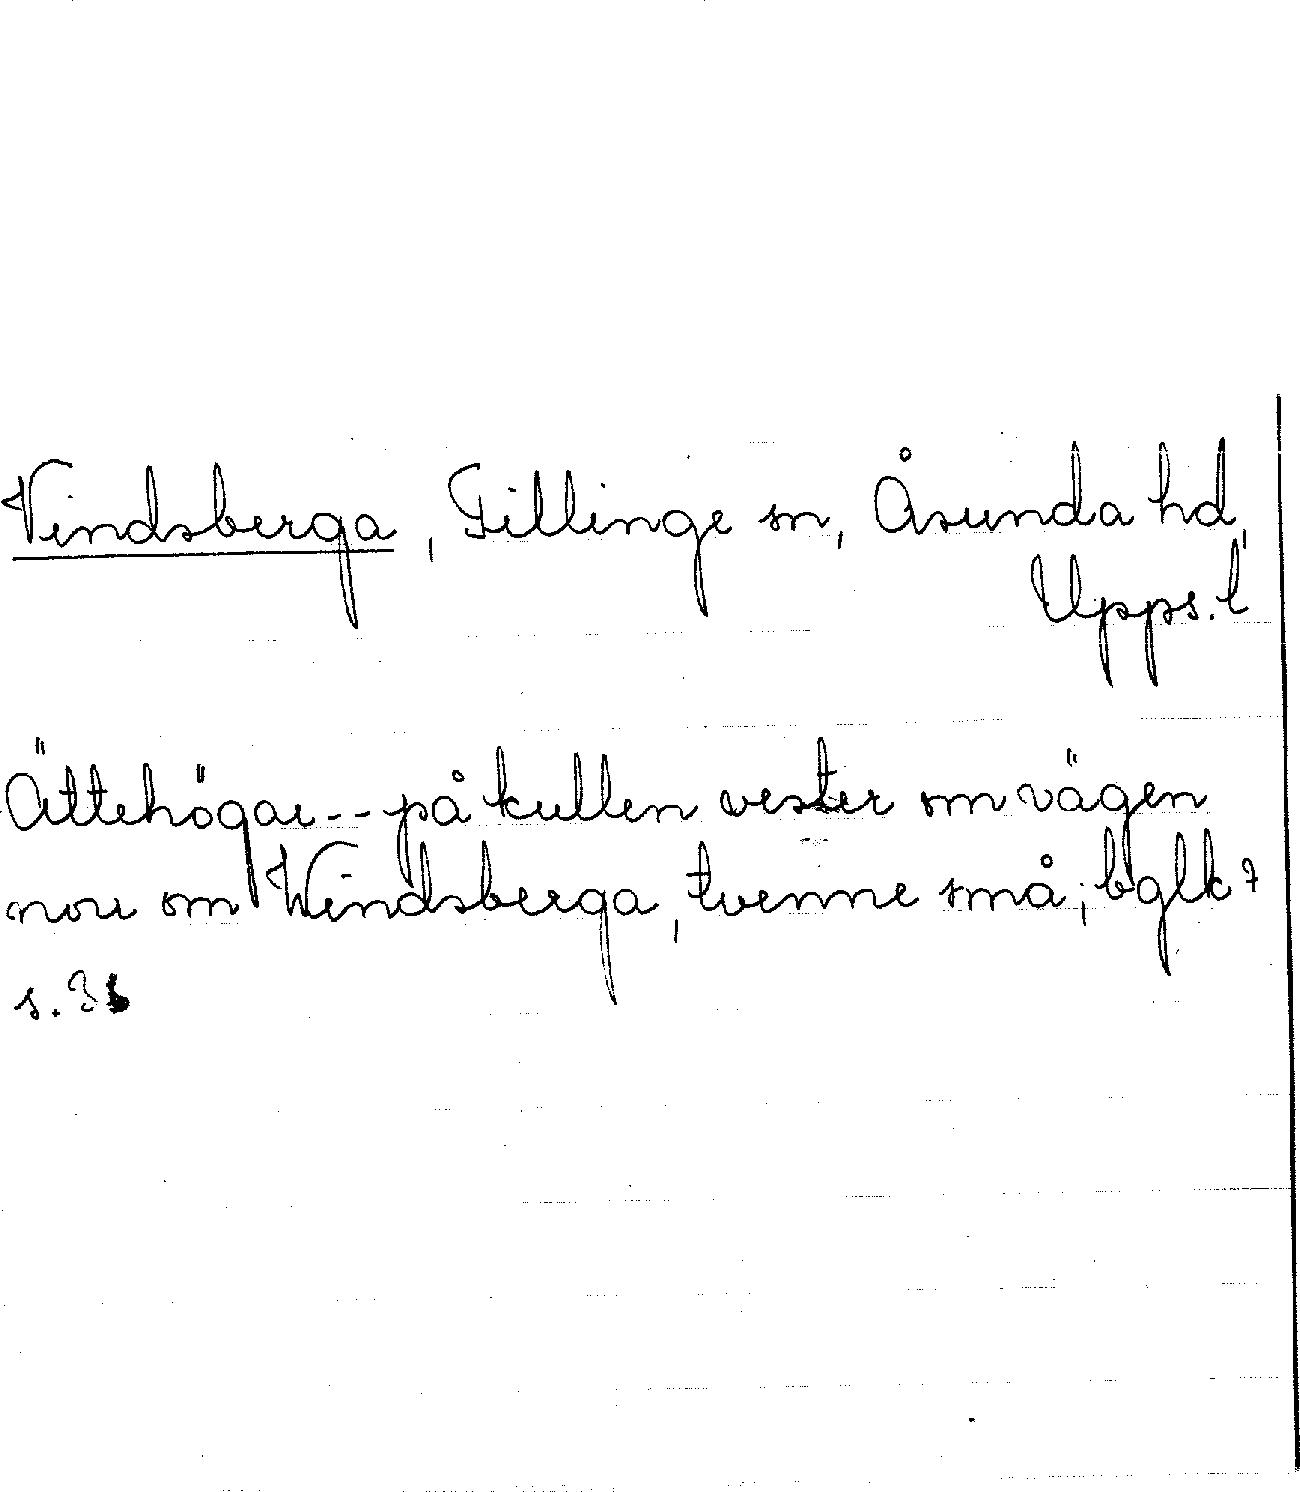 Vindsberga, Tillinge sn, Åsunda hd,
Upps. l
Ättehögar -- på kullen vester om vägen
norr om Windsberga, tvenne små; bglk 7
s. 36